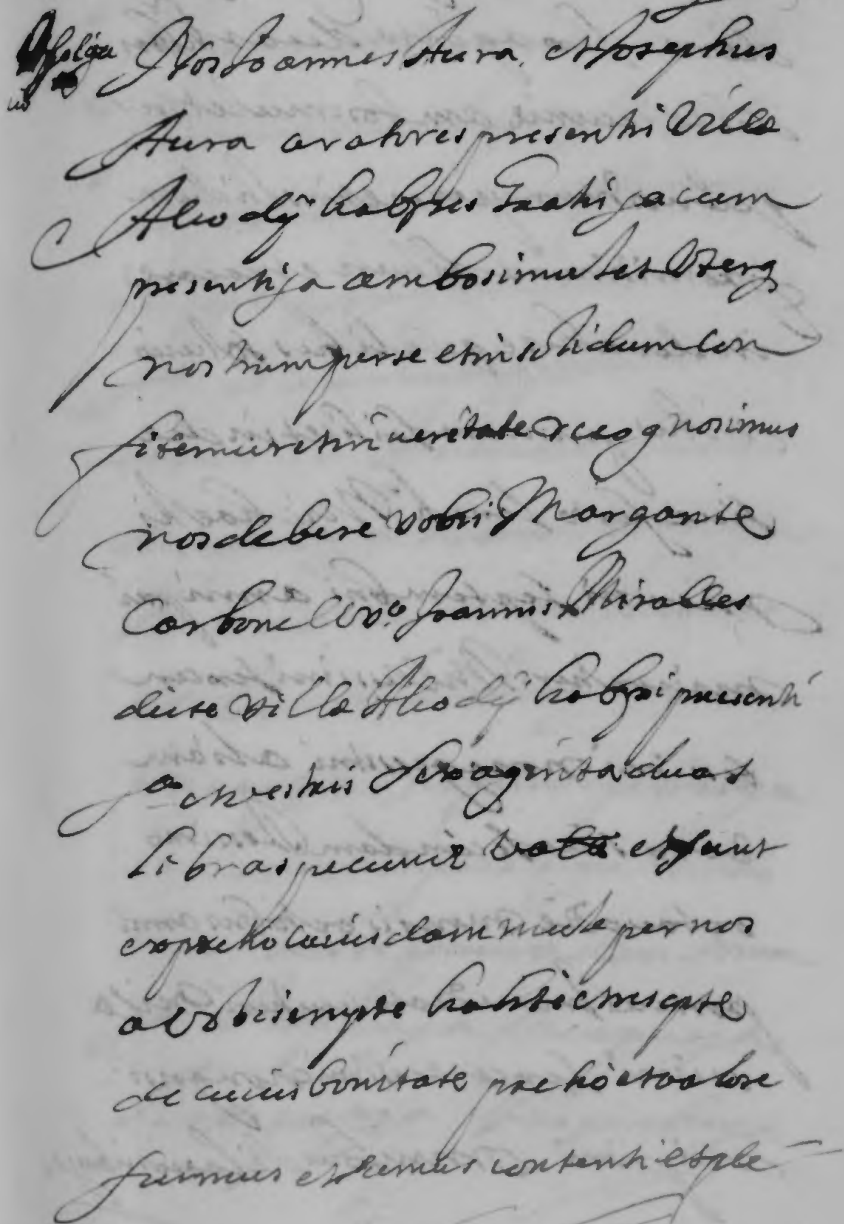 Nos Joannes Aura, et Josephus
Aura aratores presentis Ville
Alcodij habres Gratis ga cum
presenti ga ambo simul et Uterq
nostrum per se et in solidum con
fitemur et in veritate recognosimus
nos debere vobis Margarite
Carbonell vda Joannis Miralles
dicte ville Alcodij habri presenti
ga et vestris sexaginta duas
libras pecunie et sunt
ex pretio cuiusdam mule per nos
a vobis empte habite et recepte
de cuius bonitate pretio et valore
fuimus et sumus contenti et ple